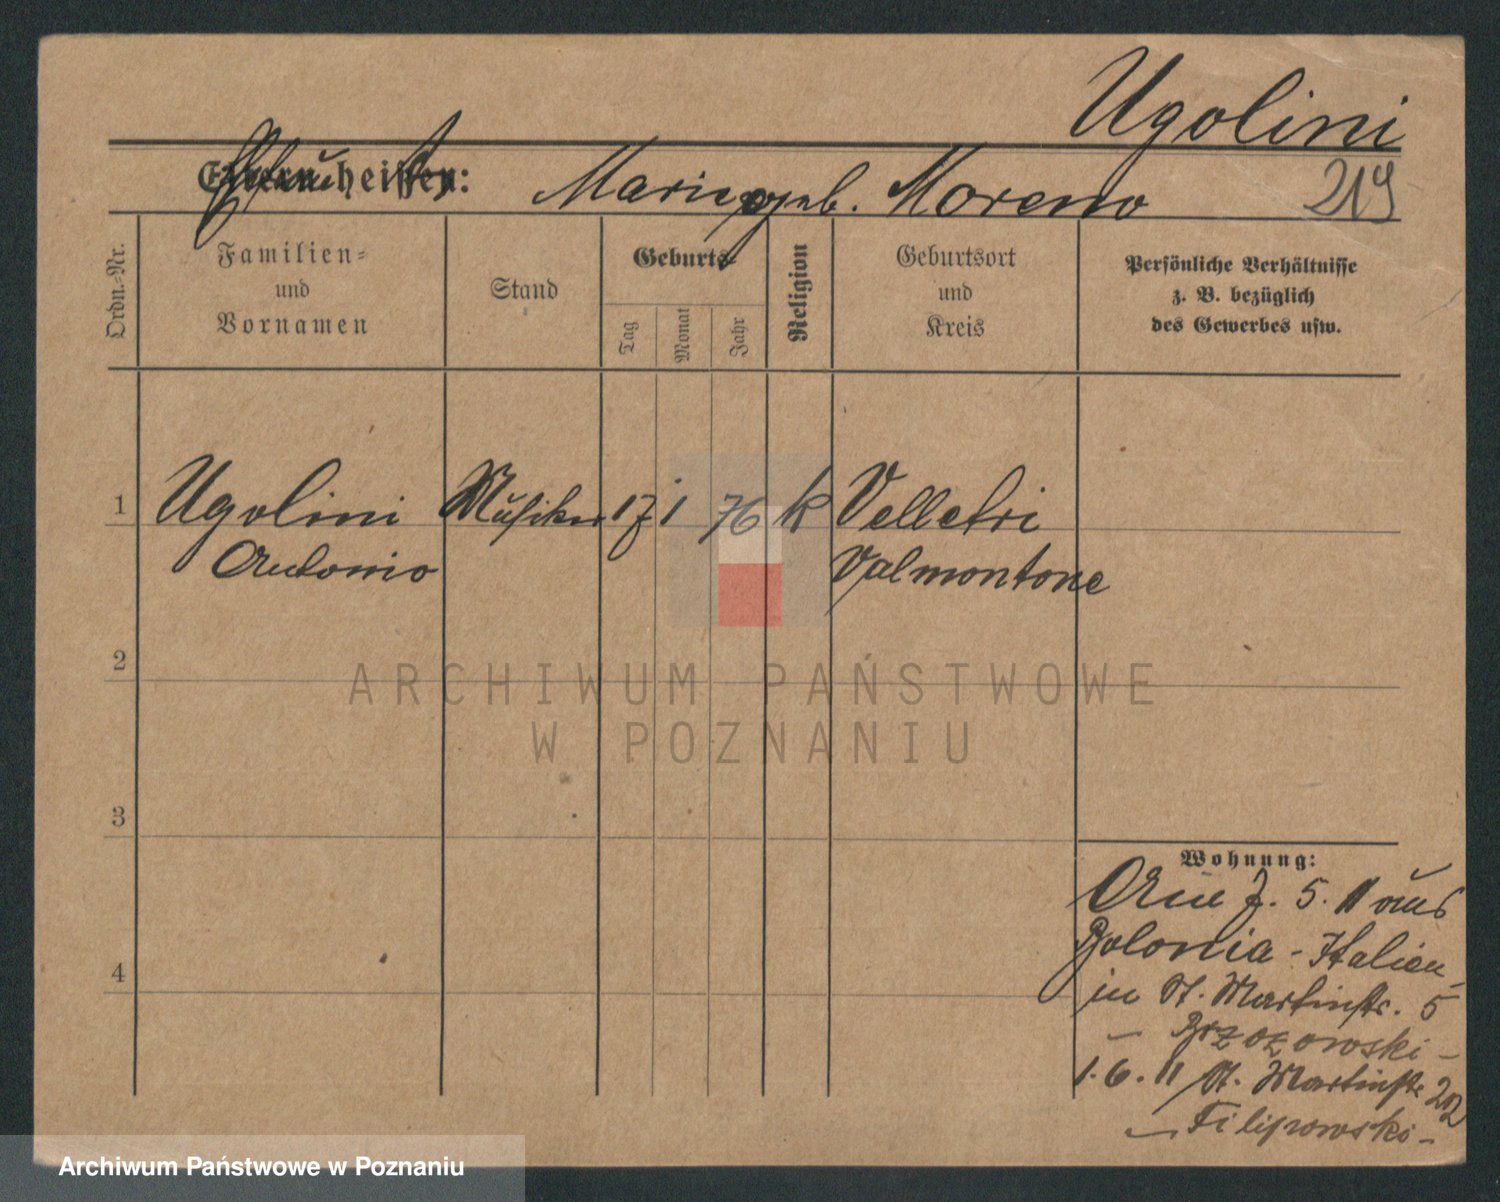 Ugolini
Eltern heissen:
Marie geb. Moreno
219
Ordn.-Nr.
Familien-
und
Vornamen
Stand
Geburts-
Tag
Monat
Jahr
Religion
Geburtsort
und
Kreis
Persönliche Verhältnisse
z. B. bezüglich
des Gewerbes usw.
1
Ugolini
Antonio
Musiker
17
1
76
k
Velletri
Valmontone
2
ARCHIWUM PAŃSTWOWE
W POZNANIU
3
4
Wohnung:
5. 11 aus
Bolonia - Italien
in St. Martinstr. 5
- Brzozowski -
1. 6. 11 St. Martinstr
- Filipowski -
Archiwum Państwowe w Poznaniu